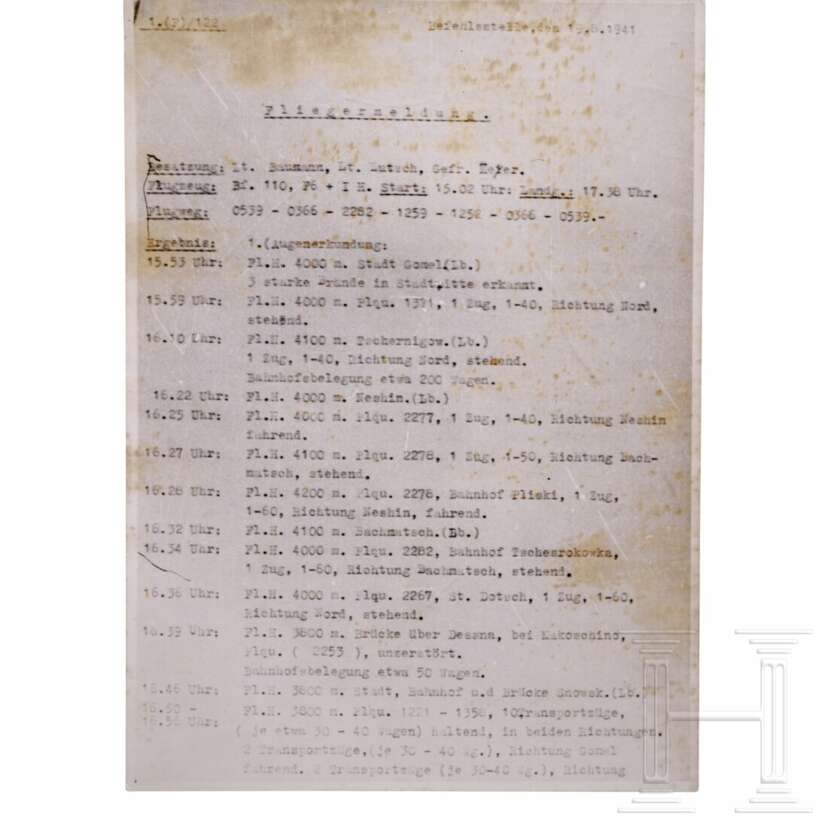 1.(F)/122 Befehlsstelle,den 19.8.1941
Fliegermeldung.
Besatzung: Lt. Baumann, Lt. Lutsch, Gefr.
Flugzeug: Bf. 110, F6 + I H. Start: 15.02 Uhr: Landg.: 17.38 Uhr.
Flugweg: 0539 - 0366 - 2282 - 1259 - 1252 - 0366 - 0539.-
Ergebnis: 1.(Augenerkundung:
15.53 Uhr: Fl.H. 4000 m. Stadt Gomel(Lb.)
3 starke Brände in Stadtmitte erkannt.
15.59 Uhr: Fl.H. 4000 m. Flqu. 1 Zug, 1-40, Richtung Nord,
stehend.
16.10 Uhr: Fl.H. 4100 m. Tschernigow.(Lb.)
1 Zug, 1-40, Richtung Nord, stehend.
Bahnhofsbelegung etwa 200 Wagen.
16.22 Uhr: Fl.H. 4000 m. Neshin.(Lb.)
16.25 Uhr: Fl.H. 4000 m. Flqu. 2277, 1 Zug, 1-40, Richtung Neshin
fahrend.
16.27 Uhr: Fl.H. 4100 m. Flqu. 2278, 1 Zug, 1-50, Richtung Bach-
matsch, stehend.
16.28 Uhr: Fl.H. 4200 m. Flqu. 2278, Bahnhof Pliski, 1 Zug,
1-60, Richtung Neshin, fahrend.
16.32 Uhr: Fl.H. 4100 m. Bachmatsch.(Lb.)
16.34 Uhr: Fl.H. 4000 m. Flqu. 2282, Bahnhof Tschesrokowka,
1 Zug, 1-60, Richtung Bachmatsch, stehend.
16.36 Uhr: Fl.H. 4000 m. Flqu. 2267, St. Dotsch, 1 Zug, 1-60,
Richtung Nord, stehend.
16.39 Uhr: Fl.H. 3800 m. Brücke über Dessna, bei Makoschino,
Flqu. ( 2253 ), unzerstört.
Bahnhofsbelegung etwa 50 Wagen.
16.46 Uhr: Fl.H. 3800 m. Stadt, Bahnhof u.d Brücke Snowsk.(Lb.
16.50 -
16.56 Uhr: Fl.H. 3800 m. Flqu. 1221 - 1358, 10Transportzüge,
( je etwa 30 - 40 Wagen) haltend, in beiden Richtungen.
2 Transportzüge,(je 30 - 40 Wg.), Richtung Gomel
fahrend. 2 Transportzüge (je 30-40 Wg.), Richtung